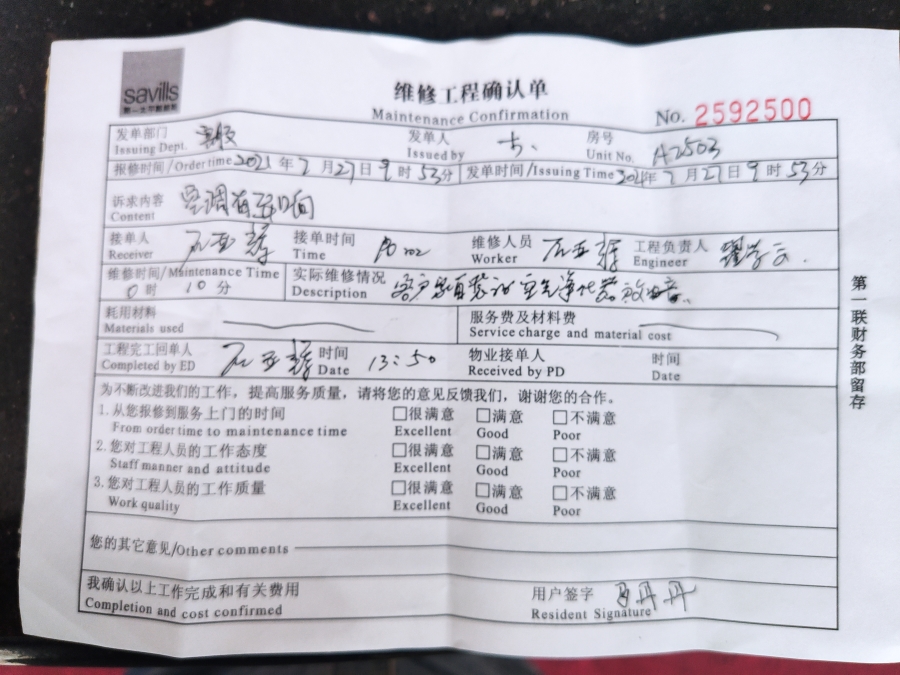 savills
维修工程确认单
Maintenance Confirmation
No. 2592500
发单部门 客服 发单人 房号
Issuing Dept. Issued by Unit No. A2503
报修时间/Order time 2021年7月27日9时53分 发单时间/Issuing Time 2021年7月27日9时53分
诉求内容 空调有异响
Content
接单人 接单时间 维修人员 工程负责人
Receiver Time Worker Engineer
维修时间/Maintenance Time 实际维修情况
10时10分 Description 客户家自装的空气净化器
耗用材料 服务费及材料费
Materials used Service charge and material cost
工程完工回单人 时间 物业接单人 时间
Completed by ED Date 13:50 Received by PD Date
为不断改进我们的工作，提高服务质量，请将您的意见反馈我们，谢谢您的合作。
1.从您报修到服务上门的时间 □很满意 □满意 □不满意
From order time to maintenance time Excellent Good Poor
2.您对工程人员的工作态度 □很满意 □满意 □不满意
Staff manner and attitude Excellent Good Poor
3.您对工程人员的工作质量 □很满意 □满意 □不满意
Work quality Excellent Good Poor
您的其它意见/Other comments
我确认以上工作完成和有关费用 用户签字 吕丹丹
Completion and cost confirmed Resident Signature
第一联财务部留存